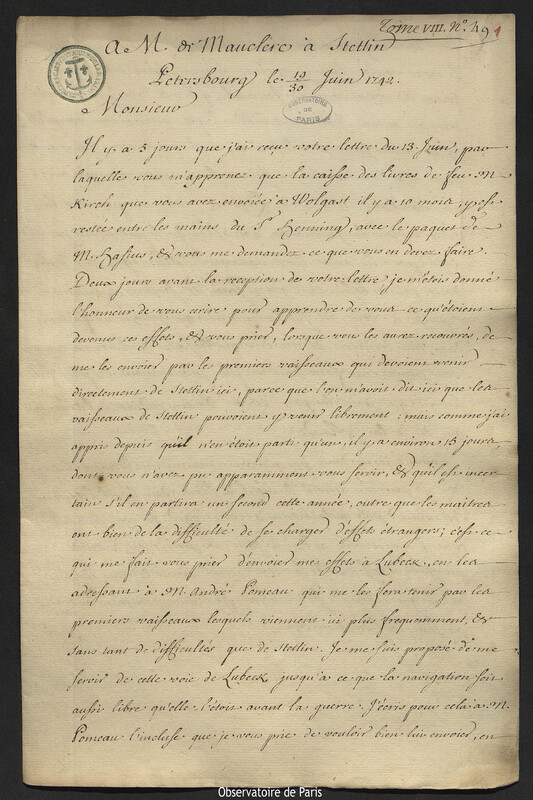 Tome VIII. N.º 49
1
A M. de Mauclére à Stettin
Petersbourg le 19/30 Juin 1742.
OBSERVATOIRE
DE
PARIS
Monsieur
Il y a 5 jours que j'ai reçu votre lettre du 13. Juin, par
laquelle vous m'apprenez que la caisse des livres de feu M
Kirch que vous avez envoiée à Wolgast il y a 10 mois, y est
restée entre les mains du Sr Henning, avec le paquet de
M. Hasius, & vous me demandez ce que vous en devez faire.
Deux jours avant la reception de votre lettre je m'étois donné
l'honneur de vous écrire pour apprendre de vous ce qu'étoient
devenus ces effets, & vous prier, lorsque vous les aurez recouvrés, de
me les envoier par les premiers vaisseaux qui devoient venir
directement de Stettin ici, parce que l'on m'avoit dit ici que les
vaisseaux de Stettin pouvoient y venir librement : mais comme j'ai
appris depuis qu'il n'en étoit parti qu'un, il y a environ 15 jours,
dont vous n'avez pu apparamment vous servir, & qu'il est incer-
tain s'il en partira un second cette année, outre que les maitres
ont bien de la difficulté de se charger d'effets étrangers ; c'est ce
qui me fait vous prier d'envoier mes effets à Lubeck, en les
adressant à M. André Pomeau qui me les fera tenir par les
premiers vaisseaux lesquels viennent ici plus frequemment, &
sans tant de difficultés que de Stettin. Je me suis proposé de me
servir de cette voie de Lubeck jusqu'à ce que la navigation soit
aussi libre qu'elle l'étoit avant la guerre. J'écris pour cela à M.
Pomeau l'incluse que je vous prie de vouloir bien lui envoier, en
Observatoire de Paris